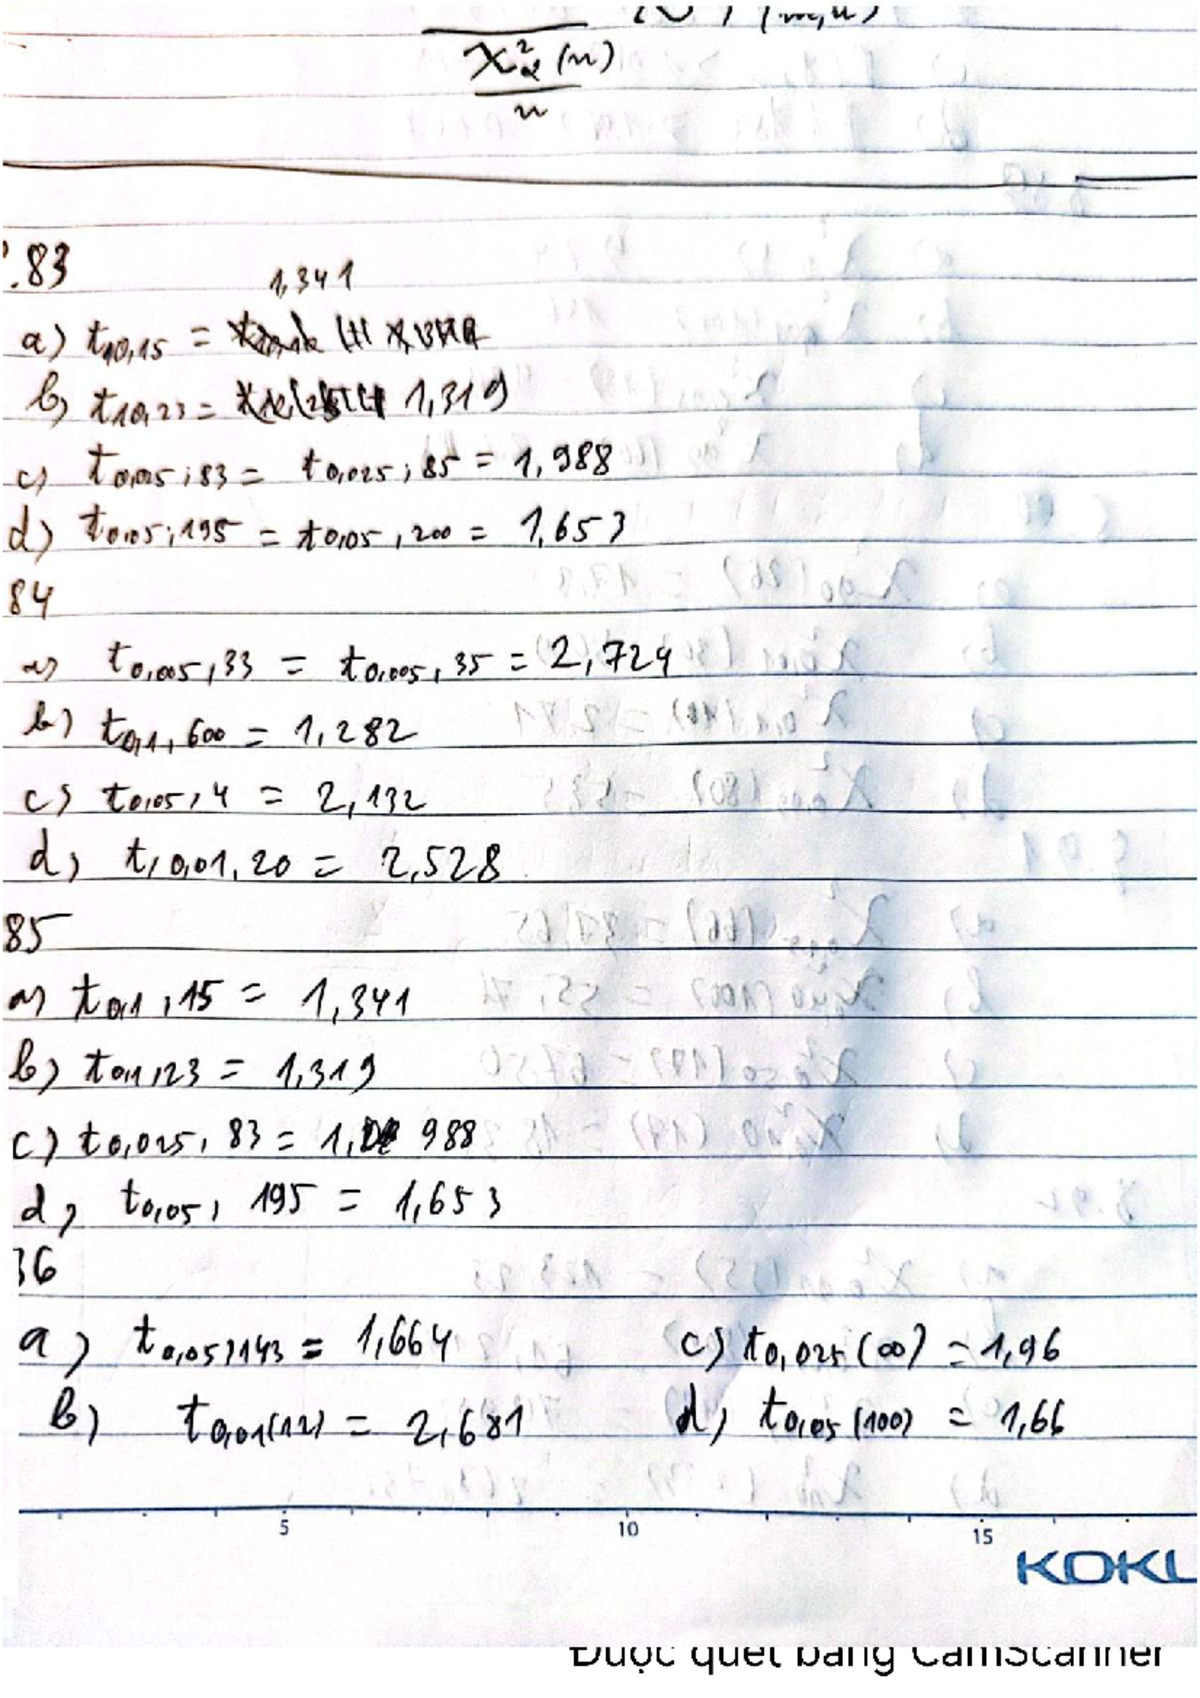 χ²α (n)
n
.83
1,341
a) t10,15 =
b) t10,23 = 1,319
c) t0,025;83 = t0,025;85 = 1,988
d) t0,05;195 = t0,05,200 = 1,653
84
a) t0,005,33 = t0,005,35 = 2,724
b) t0,1,600 = 1,282
c) t0,05,4 = 2,132
d) t,0,01,20 = 2,528
85
a) t0,1,15 = 1,341
b) t0,1,23 = 1,319
c) t0,025, 83 = 1, 988
d) t0,05, 195 = 1,653
36
a) t0,05,143 = 1,664 c) t0,025(∞) = 1,96
b) t0,01(12) = 2,681 d) t0,05(100) = 1,66
5 10 15
KOKU
Được quét bằng CamScanner